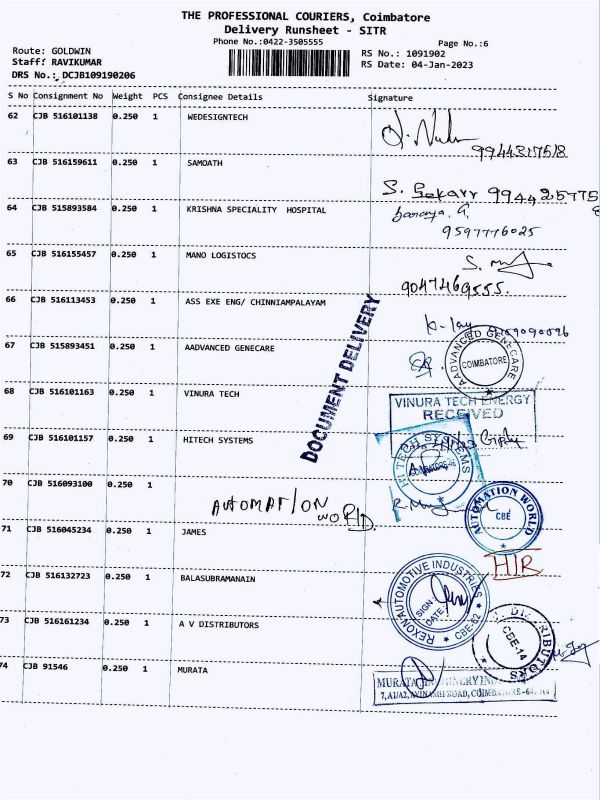 THE PROFESSIONAL COURIERS, Coimbatore
Delivery Runsheet - SITR
Phone No.:0422-3505555
Page No.:6
Route: GOLDWIN
RS No.: 1091902
Staff: RAVIKUMAR
RS Date: 04-Jan-2023
DRS No.: DCJB109190206
S No Consignment No Weight PCS Consignee Details Signature
62 CJB 516101138 0.250 1 WEDESIGNTECH
63 CJB 516159611 0.250 1 SAMOATH
64 CJB 515893584 0.250 1 KRISHNA SPECIALITY HOSPITAL
9597776025
65 CJB 516155457 0.250 1 MANO LOGISTOCS
9047469555.
66 CJB 516113453 0.250 1 ASS EXE ENG/ CHINNIAMPALAYAM
DOCUMENT DELIVERY
67 CJB 515893451 0.250 1 AADVANCED GENECARE
AADVANCED GENECARE
COIMBATORE
68 CJB 516101163 0.250 1 VINURA TECH
VINURA TECH ENERGY
RECEIVED
69 CJB 516101157 0.250 1 HITECH SYSTEMS
HI TECH SYSTEMS
70 CJB 516093100 0.250 1
AUTOMATION WORLD
AUTOMATION WORLD
CBE
71 CJB 516045234 0.250 1 JAMES
HIR
72 CJB 516132723 0.250 1 BALASUBRAMANAIN
REXON AUTOMOTIVE INDUSTRIES
SIGN
DATE
CBE-62
73 CJB 516161234 0.250 1 A V DISTRIBUTORS
DISTRIBUTORS
CBE-14
74 CJB 91546 0.250 1 MURATA
MURATA
ROAD,